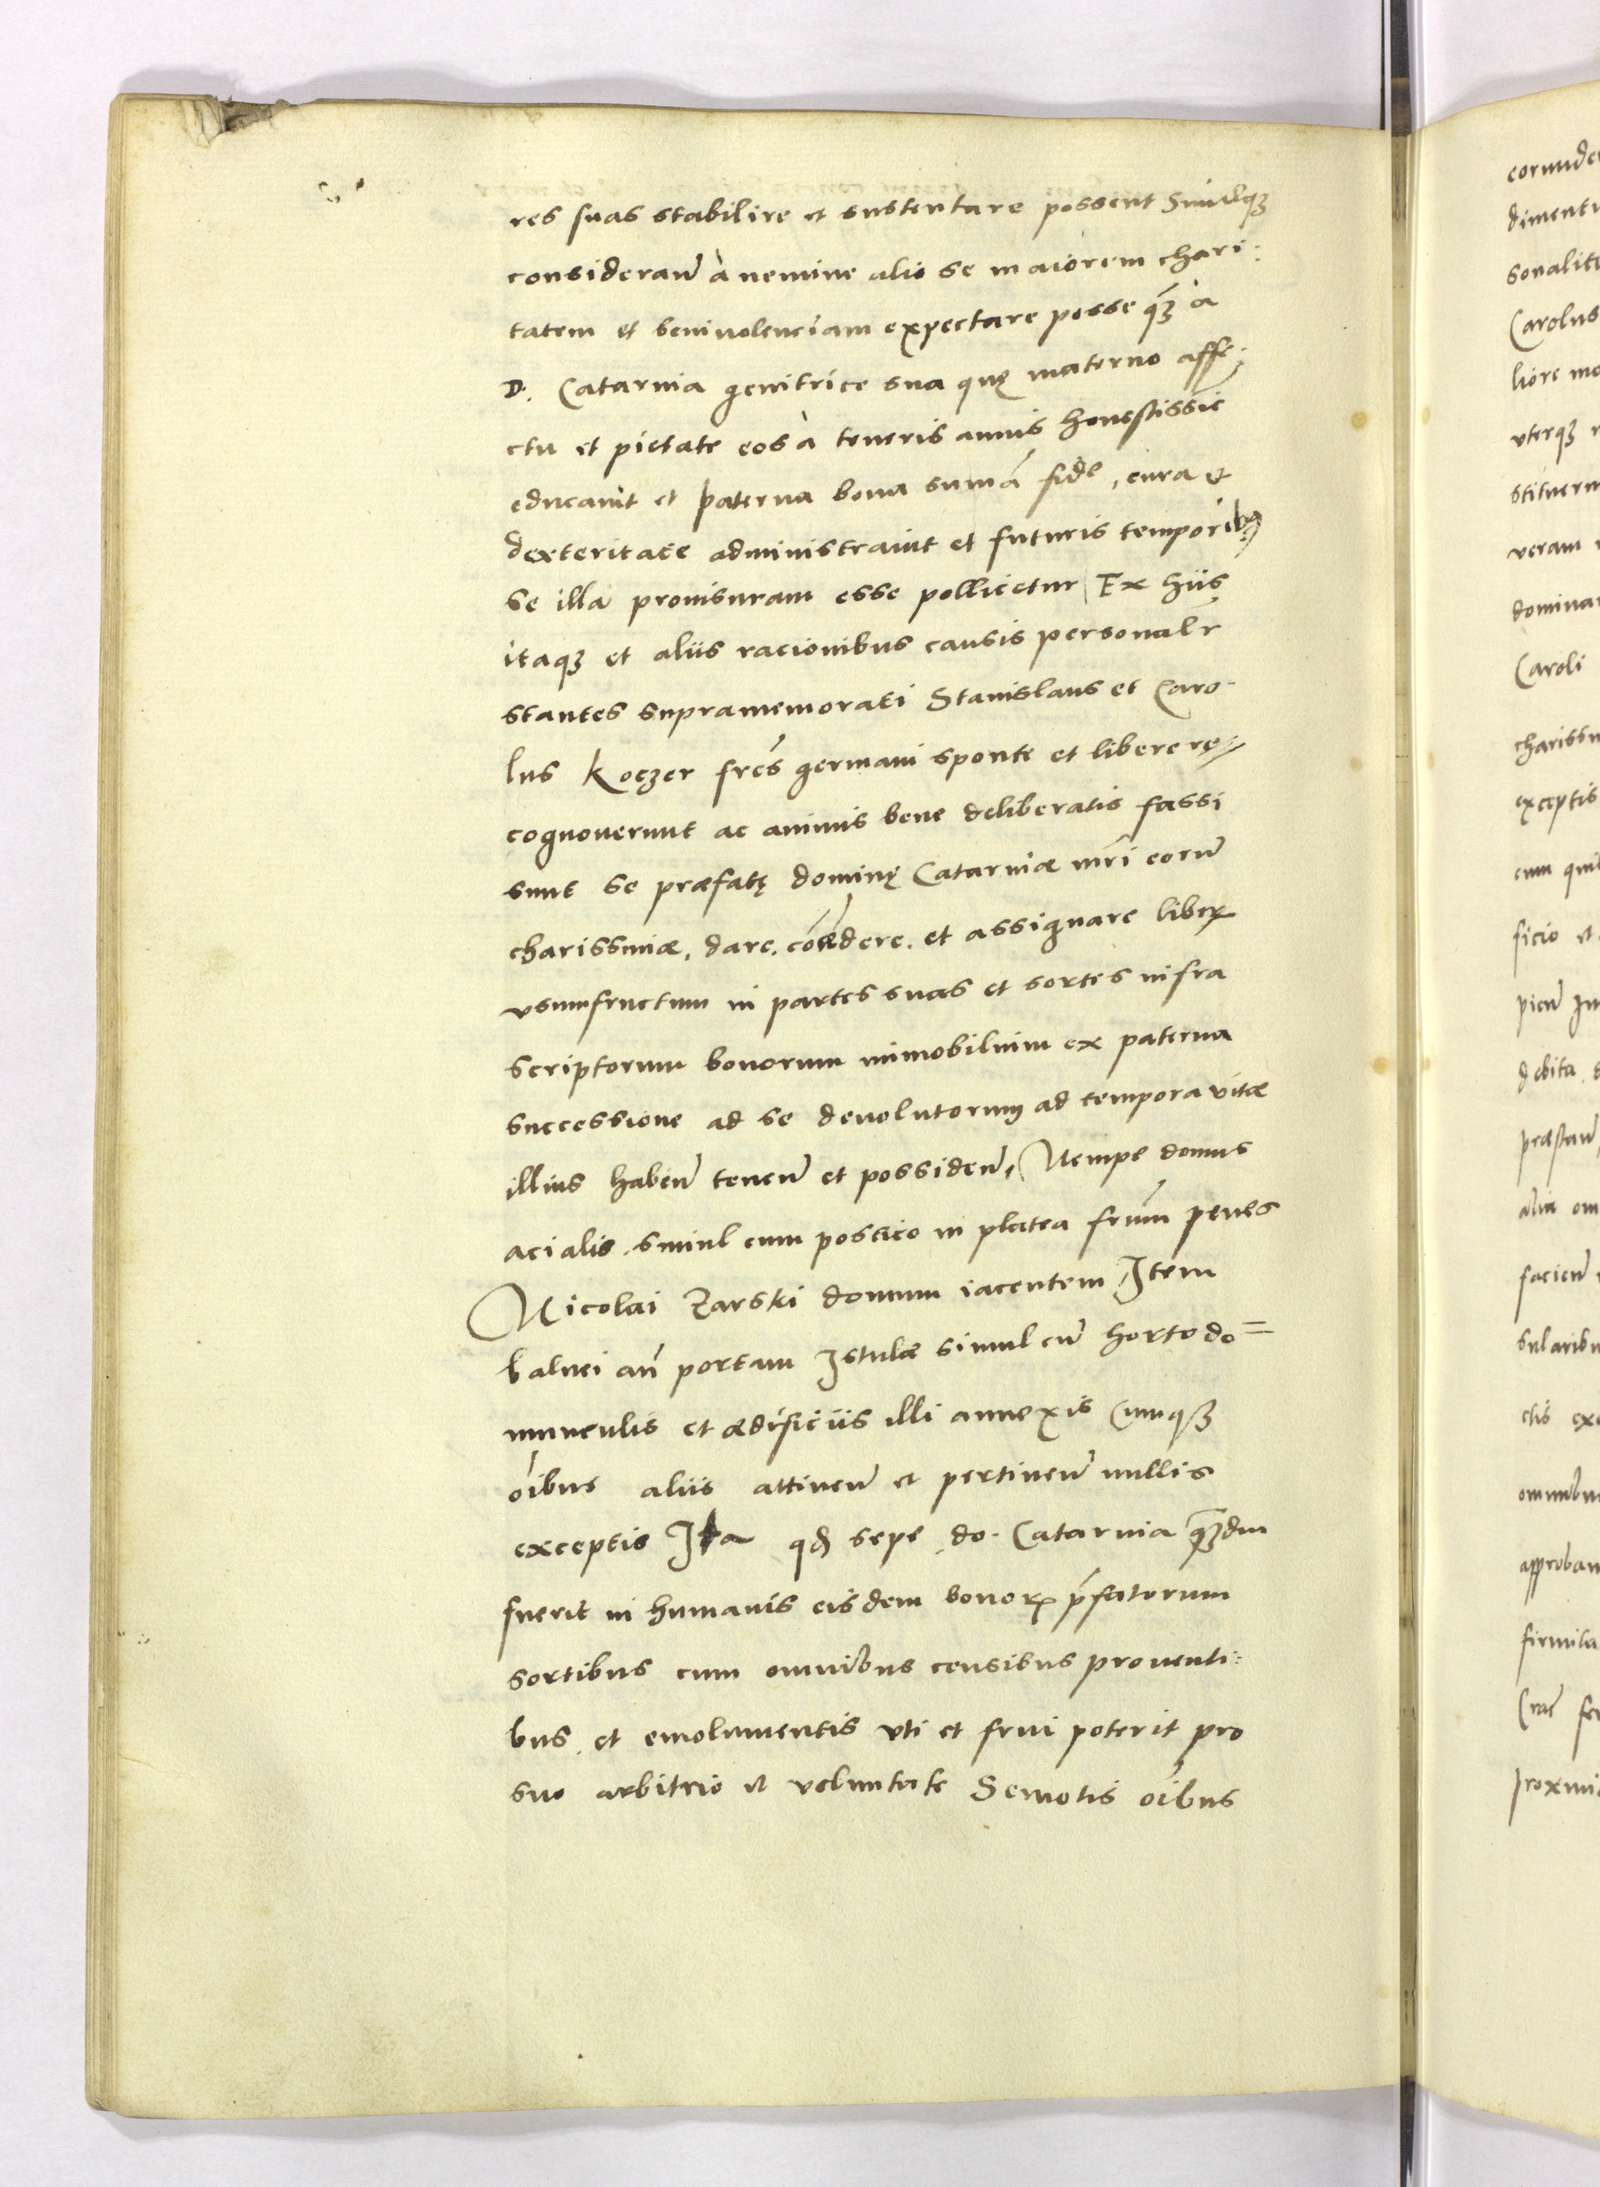 res suas stabilire et sustentare possent Simulq3
consideran̄ à nemine alio se maiorem chari:
tatem et beniuolenciam expectare posse q̄3 à
D. Catarina genitrice sua quę materno affe:
ctu et pietate eos à teneris annis honestissie
educauit et paterna bona sum̄a fide, cura et
dexteritate administrauit et futuris temporib9
se illa prouisuram esse pollicetur Ex hijs
itaq3 et aliis racionibus causis personalr
stantes supramemorati Stanislaus et Caro-
lus Koczer fre͂s germani sponte et libere re-
cognouerunt ac animis bene deliberatis fassi
sunt se præfatę dominę Catarinæ mr̄i eorū
charissimæ, dare, edere. et assignare liberū
vsumfructum in partes suas et sortes infra
scriptorum bonorum immobilium ex paterna
successione ad se deuolutorum ad tempora vitæ
illius haben̄ tenen̄ et possiden̄, Nempe domus
acialis simul cum postico in platea frūm penes
Nicolai Zarski domum iacentem Item
balnei an̄ portam Istulæ simul cū horto do=
munculis et ædificiis illi annexis Cumq3
oībus aliis attinen̄ et pertinen̄ nullis
exceptis Ita qd sepe do. Catarina q̄3diu
fuerit in humanis eisdem bonoꝝ p̄fatorum
sortibus cum omnibus censibus prouenti:
bus et emolumentis vti et frui poterit pro
suo arbitrio et voluntate Semotis oībus